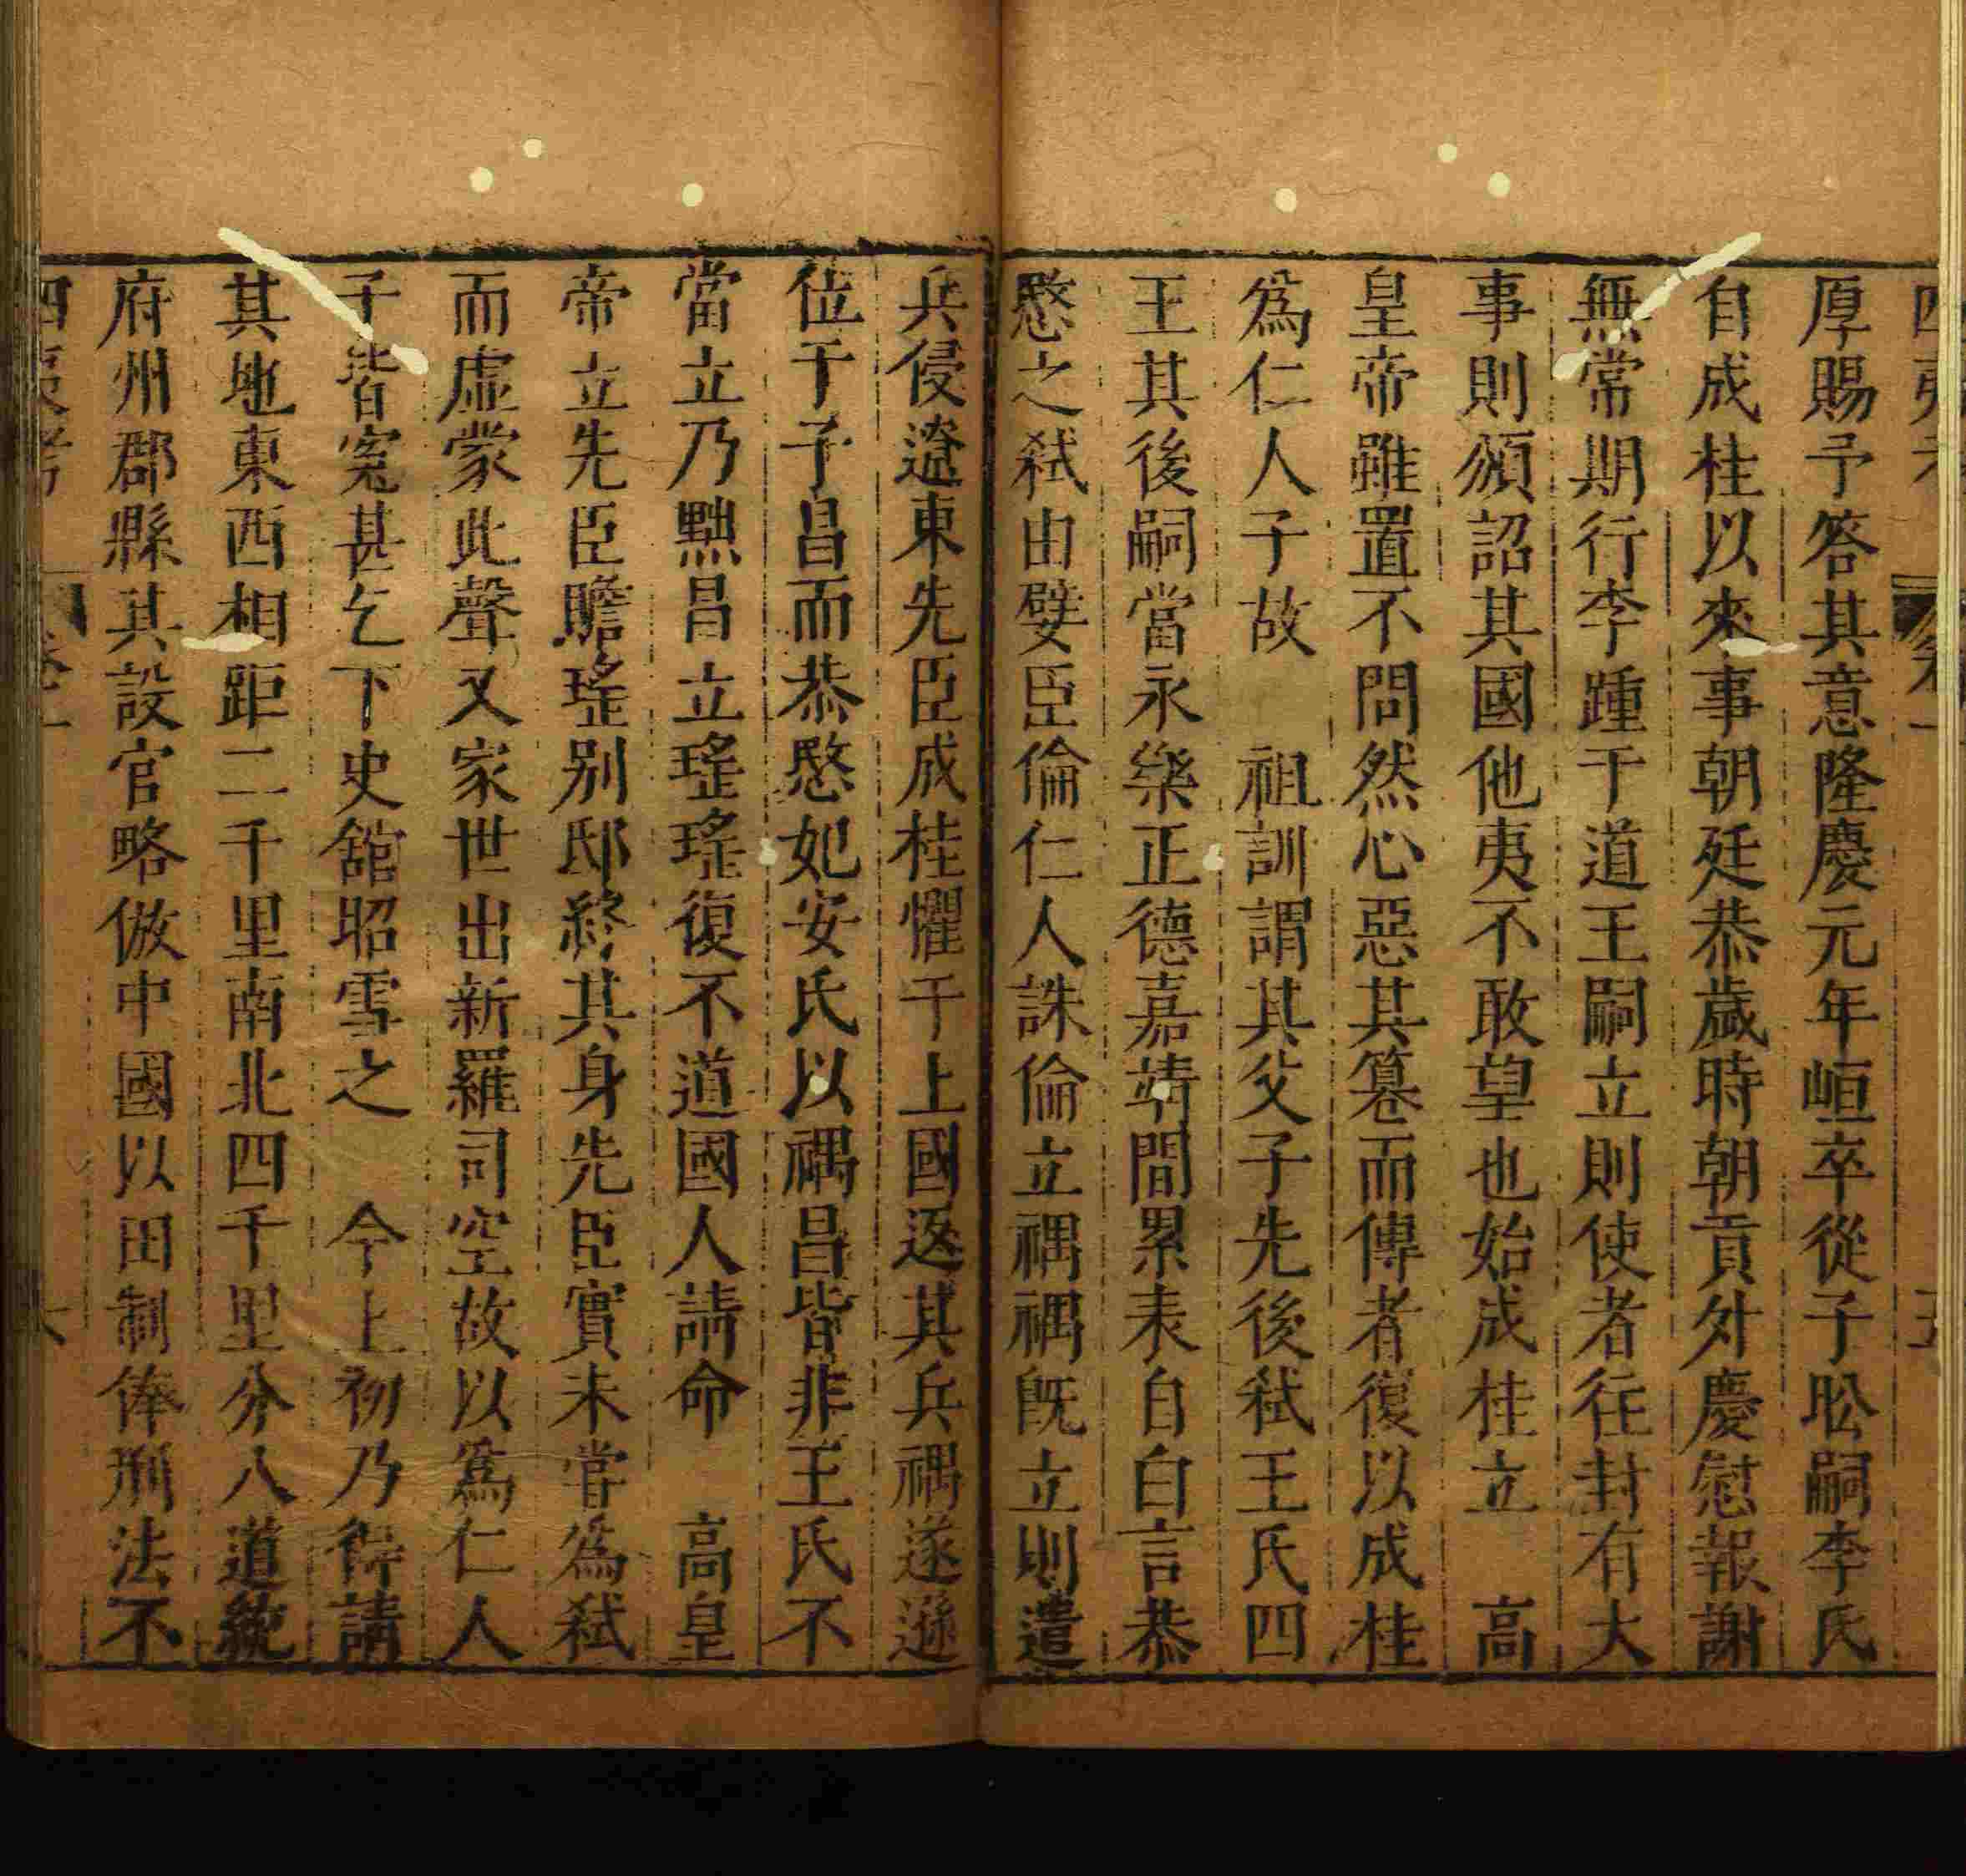 厚賜予答其意隆慶元年峘卒從子昖嗣李氏
自成桂以來事朝廷恭歲時朝貢外慶慰報謝
無常期行李踵于道王嗣立則使者往封有大
事則頒詔其國他夷不敢望也始成桂立　高
皇帝雖置不問然心惡其簒而傳者復以成桂
爲仁人子故　祖訓謂其父子先後弒王氏四
王其後嗣當永樂正德嘉靖間累表自白言恭
愍之弒由嬖臣倫仁人誅倫立禑禑旣立則遣
兵侵遼東先臣成桂懼干上國返其兵禑遂遜
位于子昌而恭愍妃安氏以禑昌皆非王氏不
當立乃黜昌立瑤瑤復不道國人請命　高皇
帝立先臣贍瑤别邸終其身先臣實未嘗爲弒
而虛蒙此聲又家世出新羅司空故以爲仁人
子皆寃甚乞下史舘昭雪之　今上初乃得請
其地東西相距二千里南北四千里分八道統
府州郡縣其設官略倣中國以田制俸刑法不